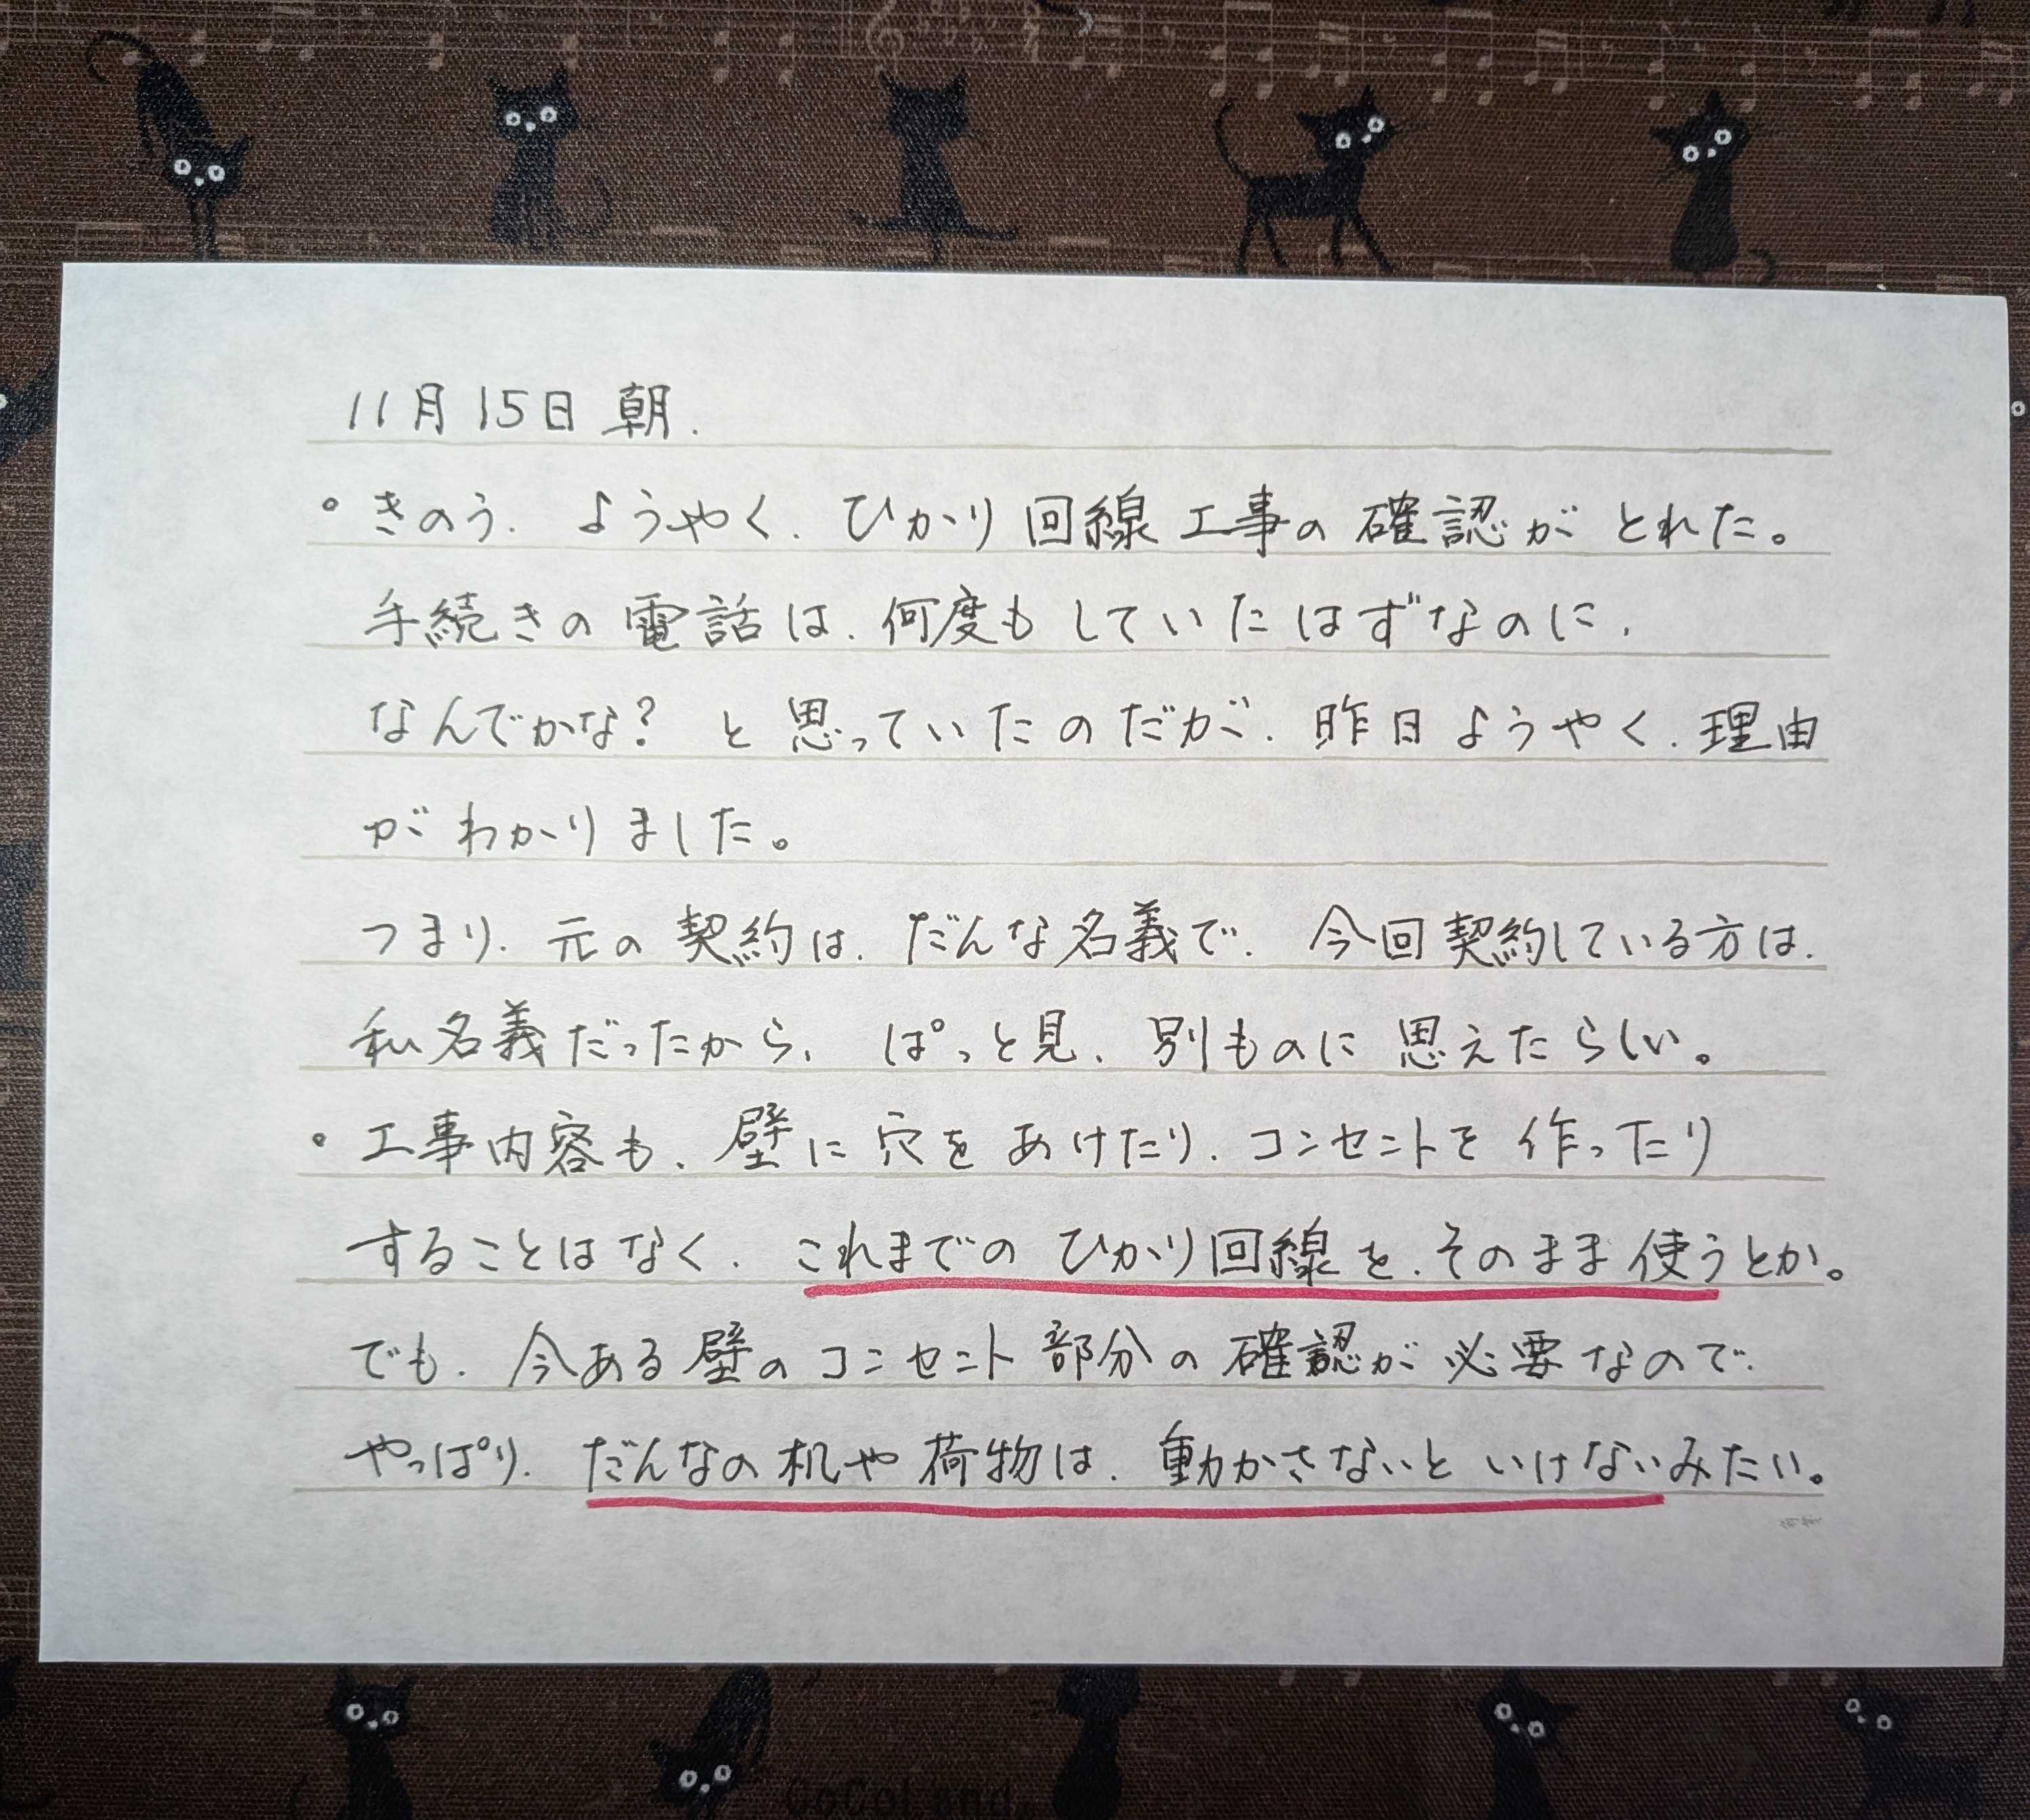 11月15日 朝.
・きのう. ようやく. ひかり回線工事の確認がとれた。
手続きの電話は. 何度もしていたはずなのに.
なんでかな? と思っていたのだが. 昨日ようやく. 理由
がわかりました。
つまり. 元の契約は. だんな名義で. 今回契約している方は.
私名義だったから、ぱっと見、別ものに思えたらしい。
・工事内容も、壁に穴をあけたり. コンセントを作ったり
することはなく. これまでのひかり回線を. そのまま使うとか。
でも. 今ある壁のコンセント部分の確認が必要なので.
やっぱり. だんなの机や荷物は. 動かさないといけないみたい。
CoCoLand